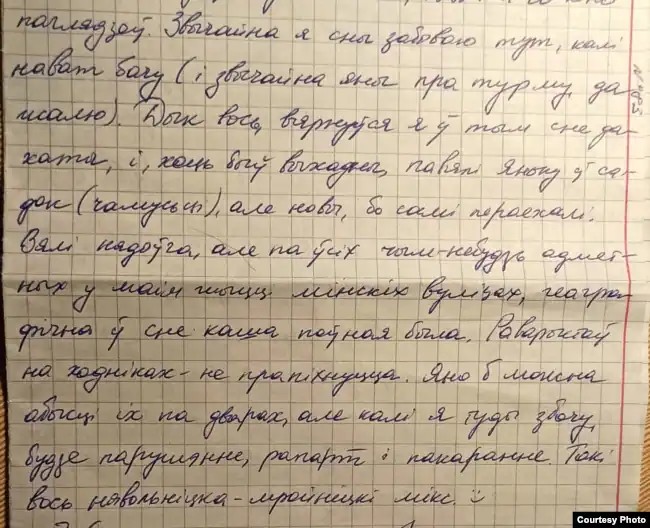 паглядзаў. Звычайна я сны забываю тут, калі
нават бачу (і звычайна яны пра турму, да
жалю). Дык вось, вярнуўся я ў тым сне да-
хаты, і, хоць быў выхадны, павялі Янкy ў са-
док (чамусьці), але новы, бо самі пераехалі.
Вялі нядоўга, але па ўсіх чым-небудзь адмет-
ных у маім жыцці мінскіх вуліцах, геагра-
фічна ў сне каша поўная была. Раварыстаў
на ходніках - не прапіхнуцца. Яно б можна
абысці іх па дварах, але калі я туды збочу,
будзе парушэнне, рапарт і пакаранне. Такі
вось нявольніцка-мройніцкі мікс. :)
Courtesy Photo